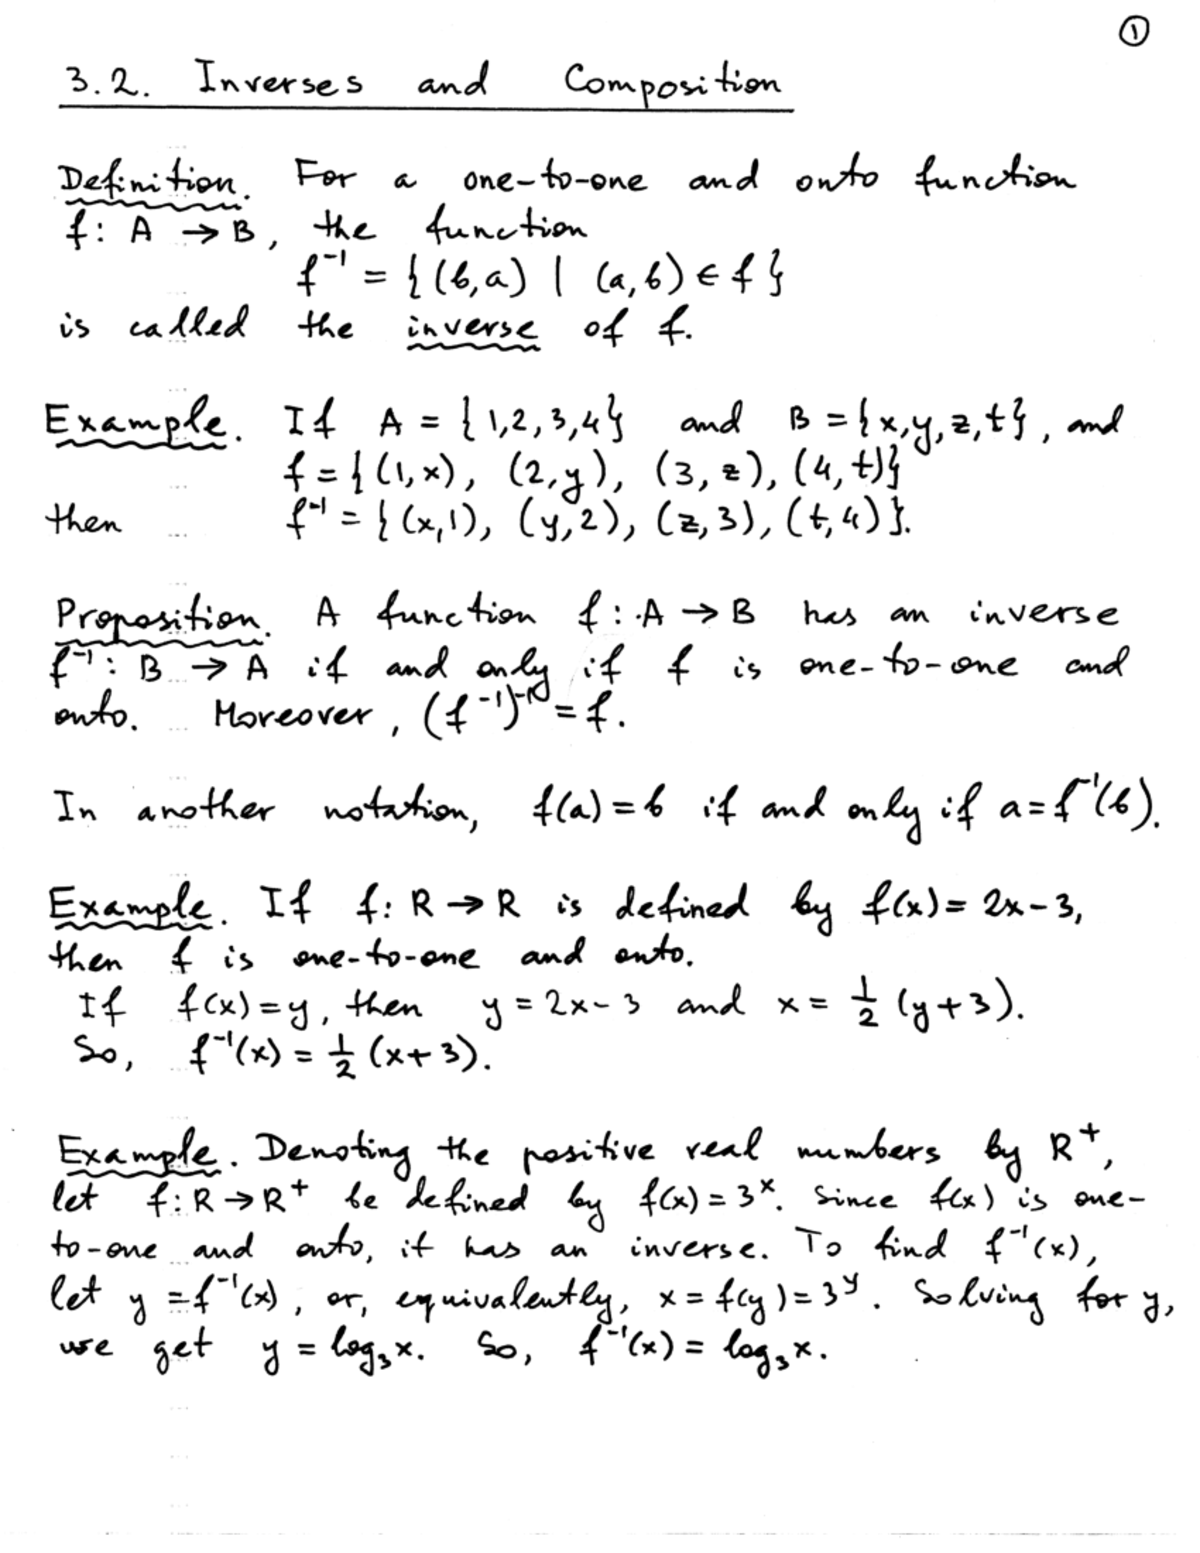 ①
3.2. Inverses and Composition
Definition. For a one-to-one and onto function
f: A → B, the function
f⁻¹ = { (b,a) | (a,b) ∈ f }
is called the inverse of f.
Example. If A = { 1,2,3,4} and B = {x,y,z,t}, and
f = { (1,x), (2,y), (3,z), (4,t)}
then f⁻¹ = { (x,1), (y,2), (z,3), (t,4) }.
Proposition. A function f: A → B has an inverse
f⁻¹: B → A if and only if f is one-to-one and
onto. Moreover, (f⁻¹)⁻¹ = f.
In another notation, f(a) = b if and only if a = f⁻¹(b).
Example. If f: R → R is defined by f(x) = 2x - 3,
then f is one-to-one and onto.
If f(x) = y, then y = 2x - 3 and x = ½ (y+3).
So, f⁻¹(x) = ½ (x+3).
Example. Denoting the positive real numbers by R⁺,
let f: R → R⁺ be defined by f(x) = 3ˣ. Since f(x) is one-
to-one and onto, it has an inverse. To find f⁻¹(x),
let y = f⁻¹(x), or, equivalently, x = f(y) = 3ʸ. Solving for y,
we get y = log₃x. So, f⁻¹(x) = log₃x.